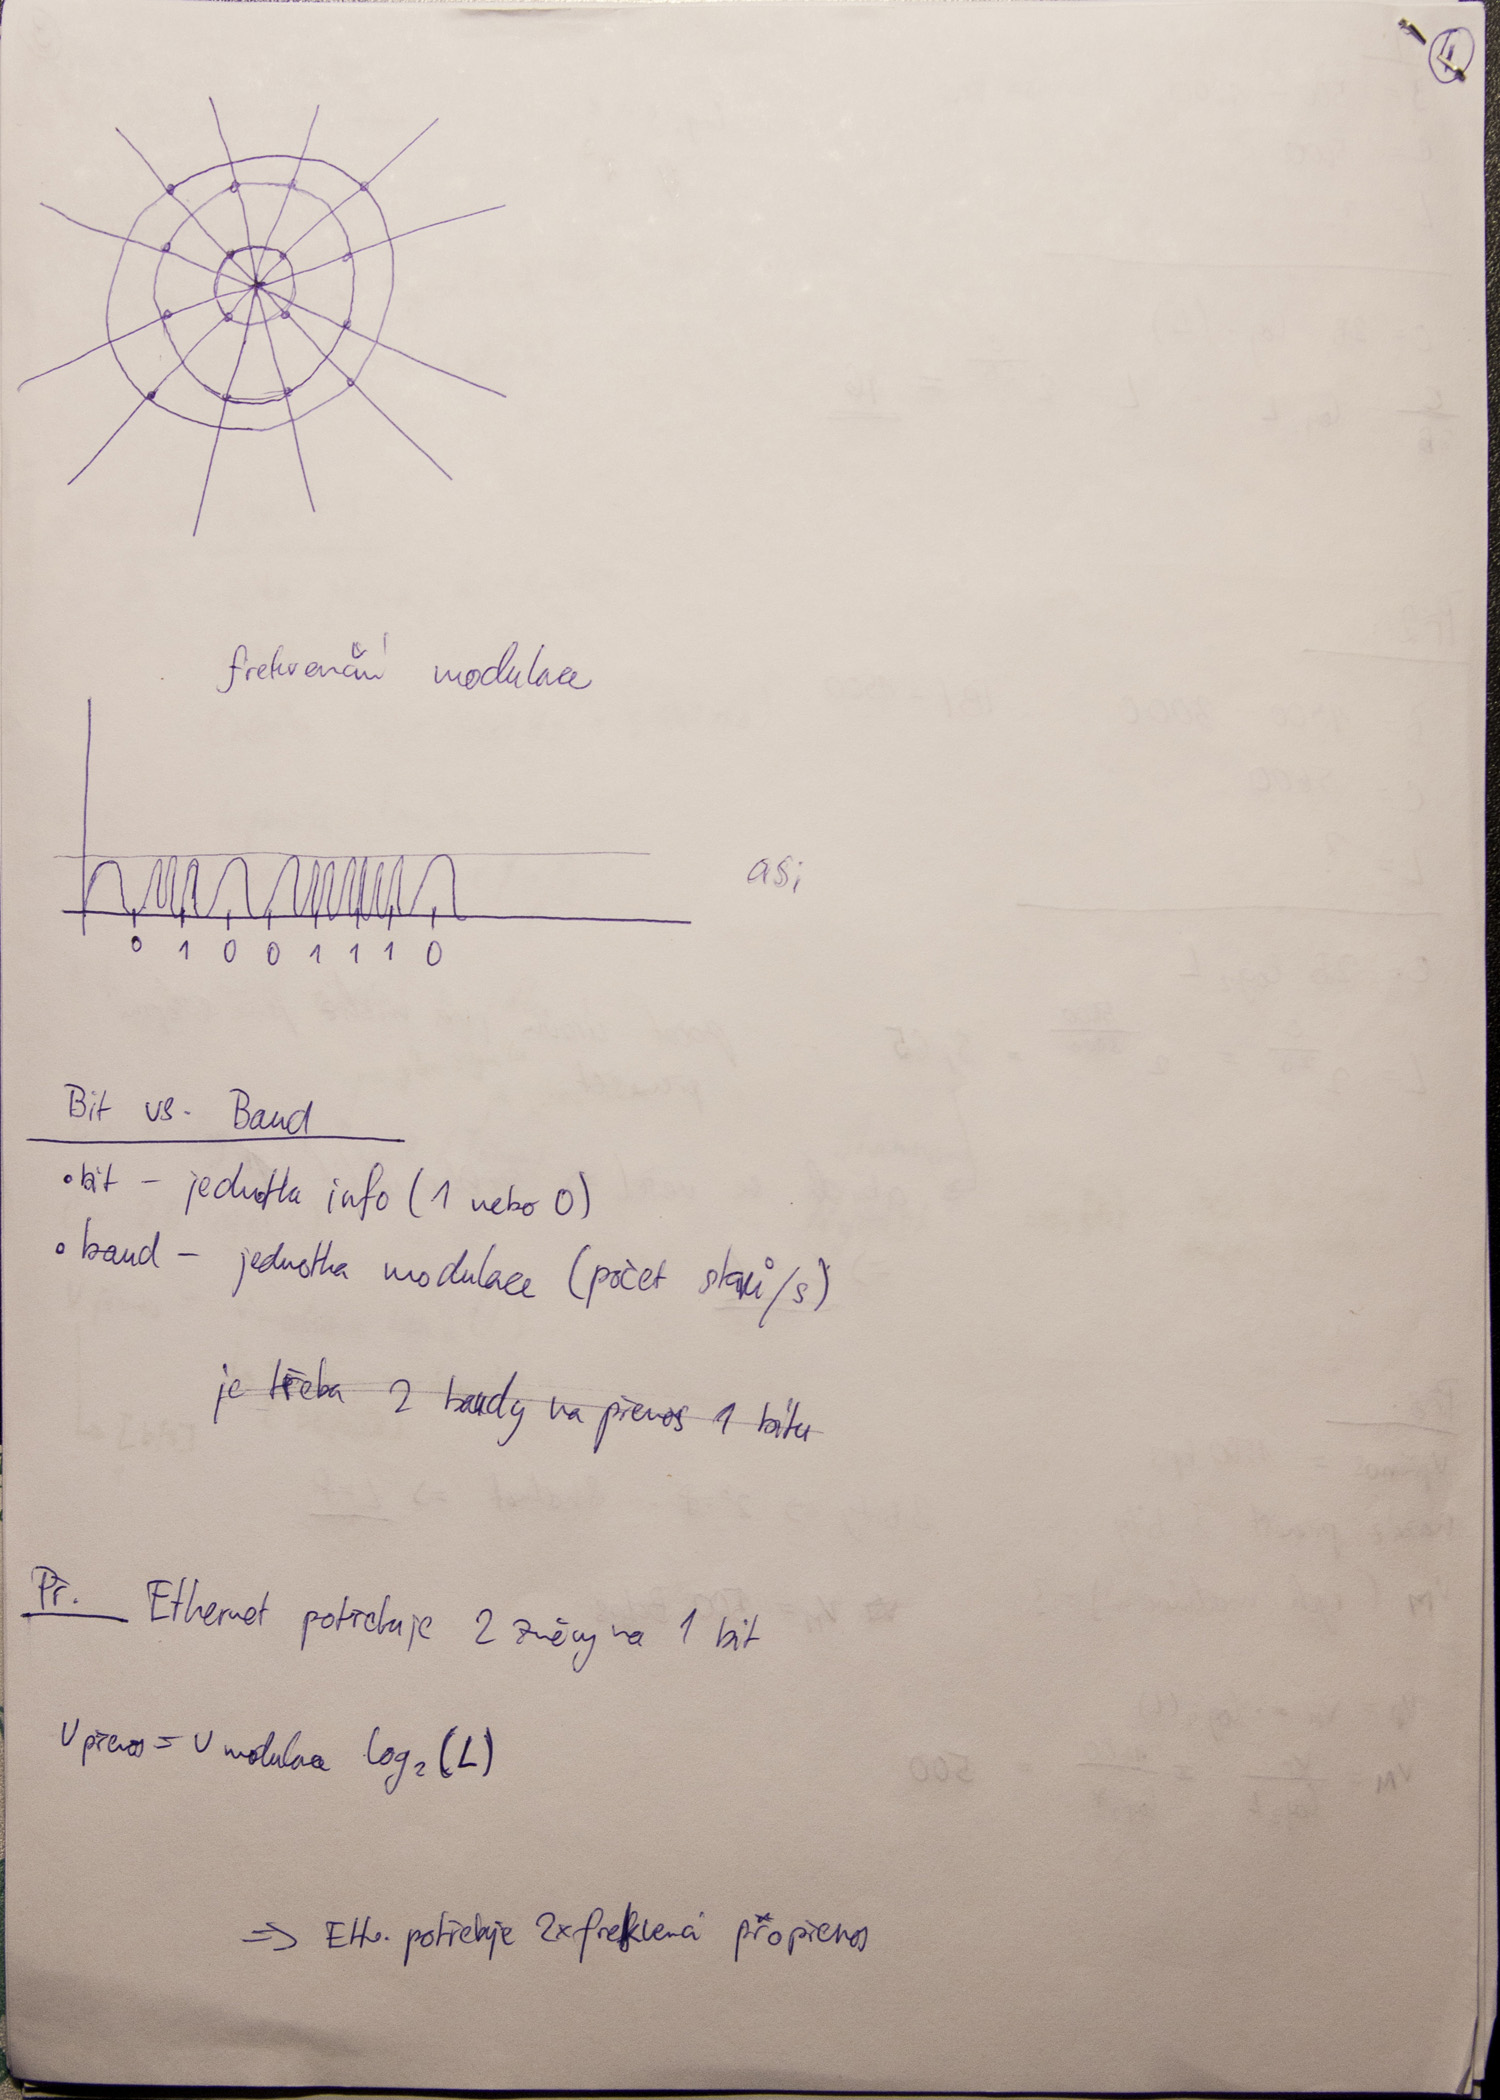 4
frekvenční modulace
asi
0 1 0 0 1 1 1 0
Bit vs. Baud
• bit – jednotka info (1 nebo 0)
• baud – jednotka modulace (počet stavů/s)
je třeba 2 baudy na přenos 1 bitu
Př. Ethernet potřebuje 2 změny na 1 bit
v přenos = v modulace log₂(L)
=> Eth. potřebuje 2x frekvencí přenos